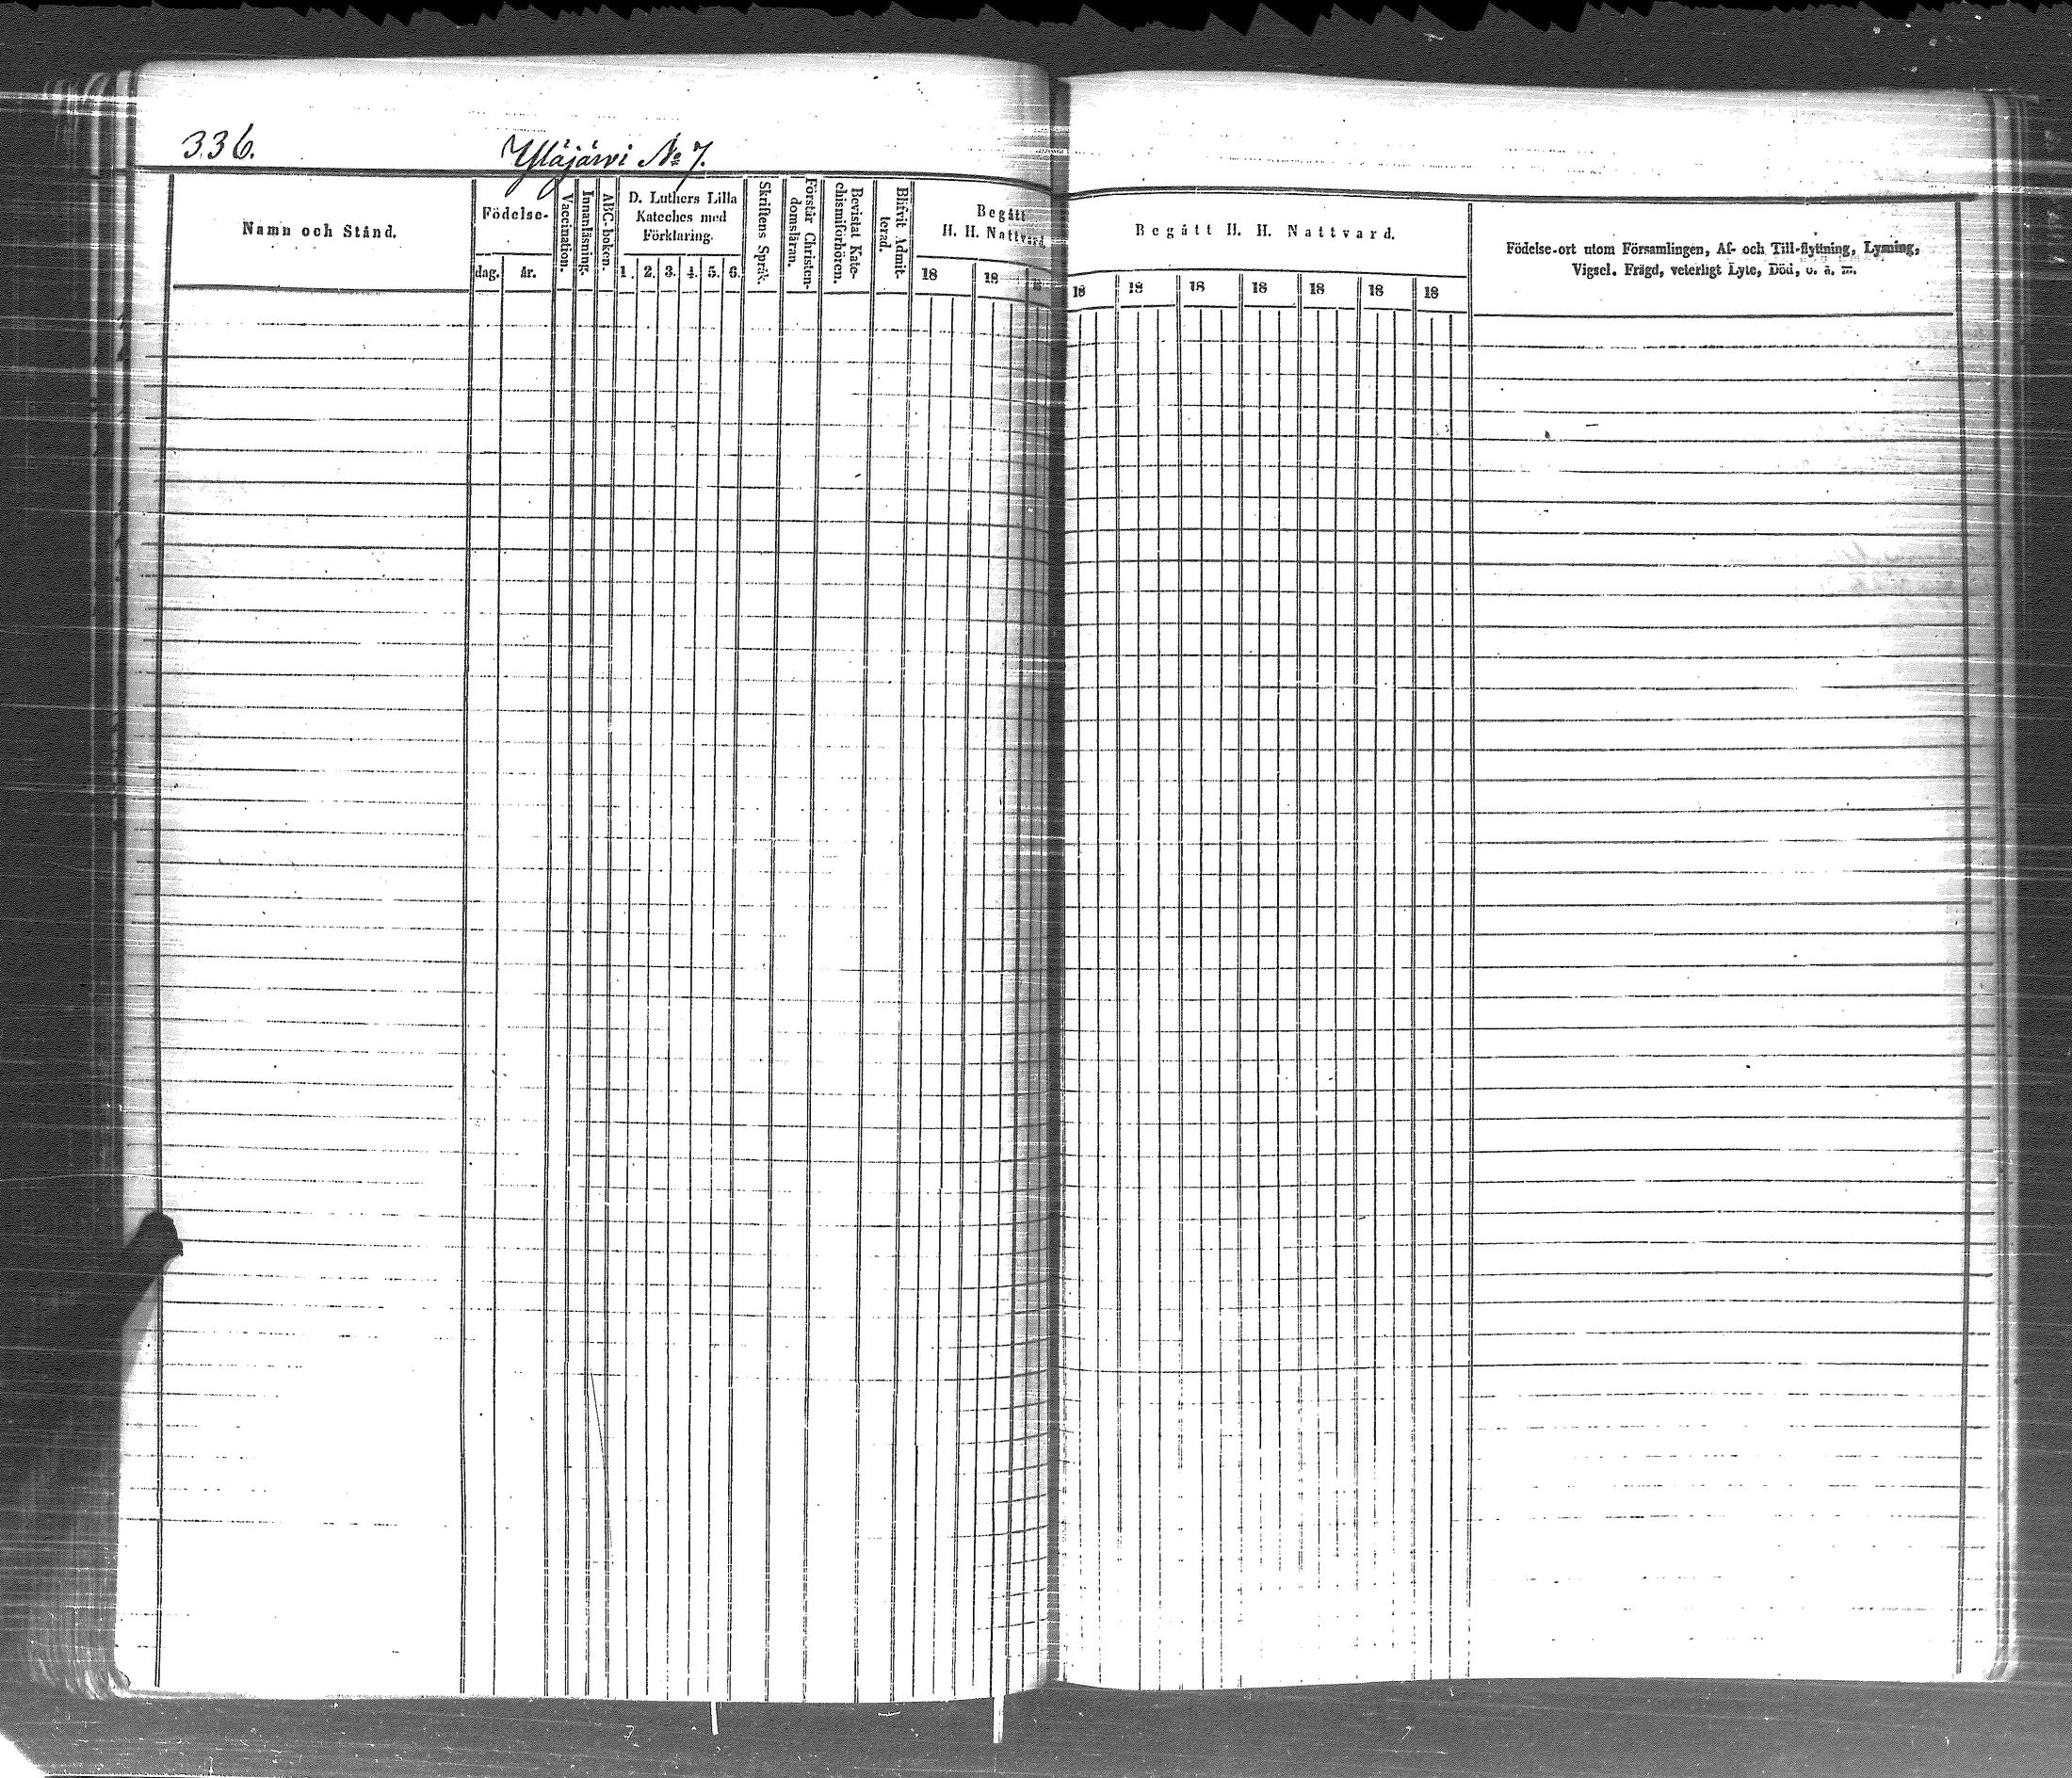 336.
Yläjärvi No 7.
Namn och Stånd.
Födelse-
dag.
år.
Vaccination.
Innanläsning.
ABC-boken.
D. Luthers Lilla
Kateches med
Förklaring.
1. 2. 3. 4. 5. 6.
Skriftens Språk.
Förstår Christen-
domsläran.
Bevistat Kate-
chismiförhören.
Blifvit Admit-
terad.
Begått
H. H. Nattvard.
18 18 18
Begått H. H. Nattvard.
18 18 18 18 18 18 18
Födelse-ort utom Församlingen, Af- och Till-flyttning, Lysning,
Vigsel. Frägd, veterligt Lyte, Död, o. a. m.